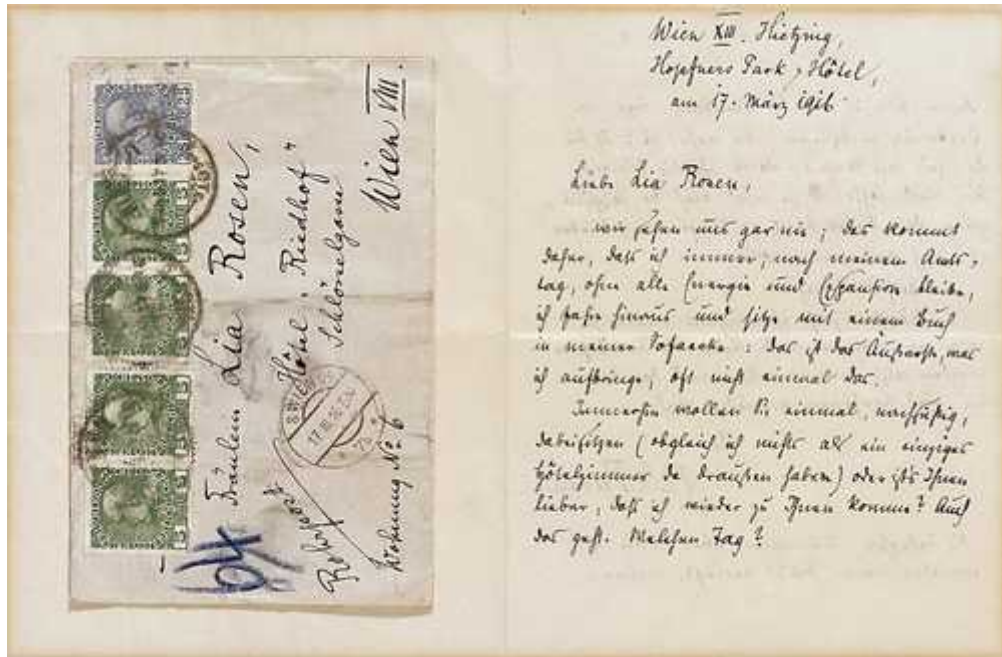 Fräulein Lia Rosen,
Hôtel "Riedhof"
Schlösselgasse
Wien VIII.
Rohrpost
Wohnung No. 6
WIEN
17.III.16
25
5
5
5
5
Wien XIII. Hietzing,
Hopfners Park-Hôtel,
am 17. März 1916.
Liebe Lia Rosen,
wir sehen uns gar nie; das kommt
daher, dass ich immer, nach meinem Amts-
tag, ohne alle Energie und Expansion bleibe,
ich fahre hinaus und sitze mit einem Buch
in meiner Sofaecke: das ist das Äußerste, was
ich aufbringe, oft nicht einmal das.
Immerhin wollen Sie einmal, nachsichtig,
dabeisitzen (obgleich ich nichts als ein einziges
Hôtelzimmer da draußen habe) oder ists Ihnen
lieber, daß ich wieder zu Ihnen komme? Auch
das geht. Welchen Tag?